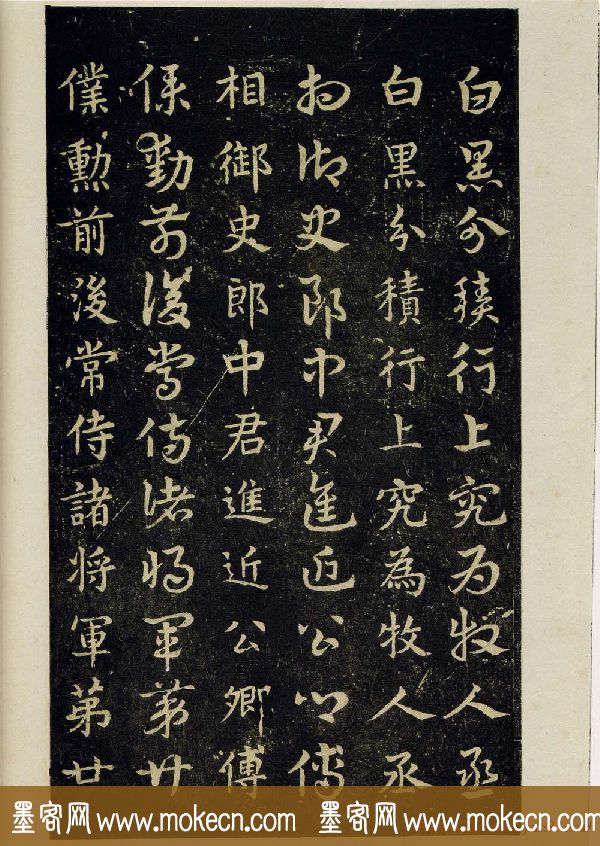 白黑分積行上究为牧人丞
白黑分積行上究為牧人丞
相御史郎中君進近公卿傅
相御史郎中君進近公卿傅
僕勳前後常侍諸将軍苐廿
僕勳前後常侍諸将軍苐廿
墨客网 www.mokecn.com 墨客网 www.mokecn.com